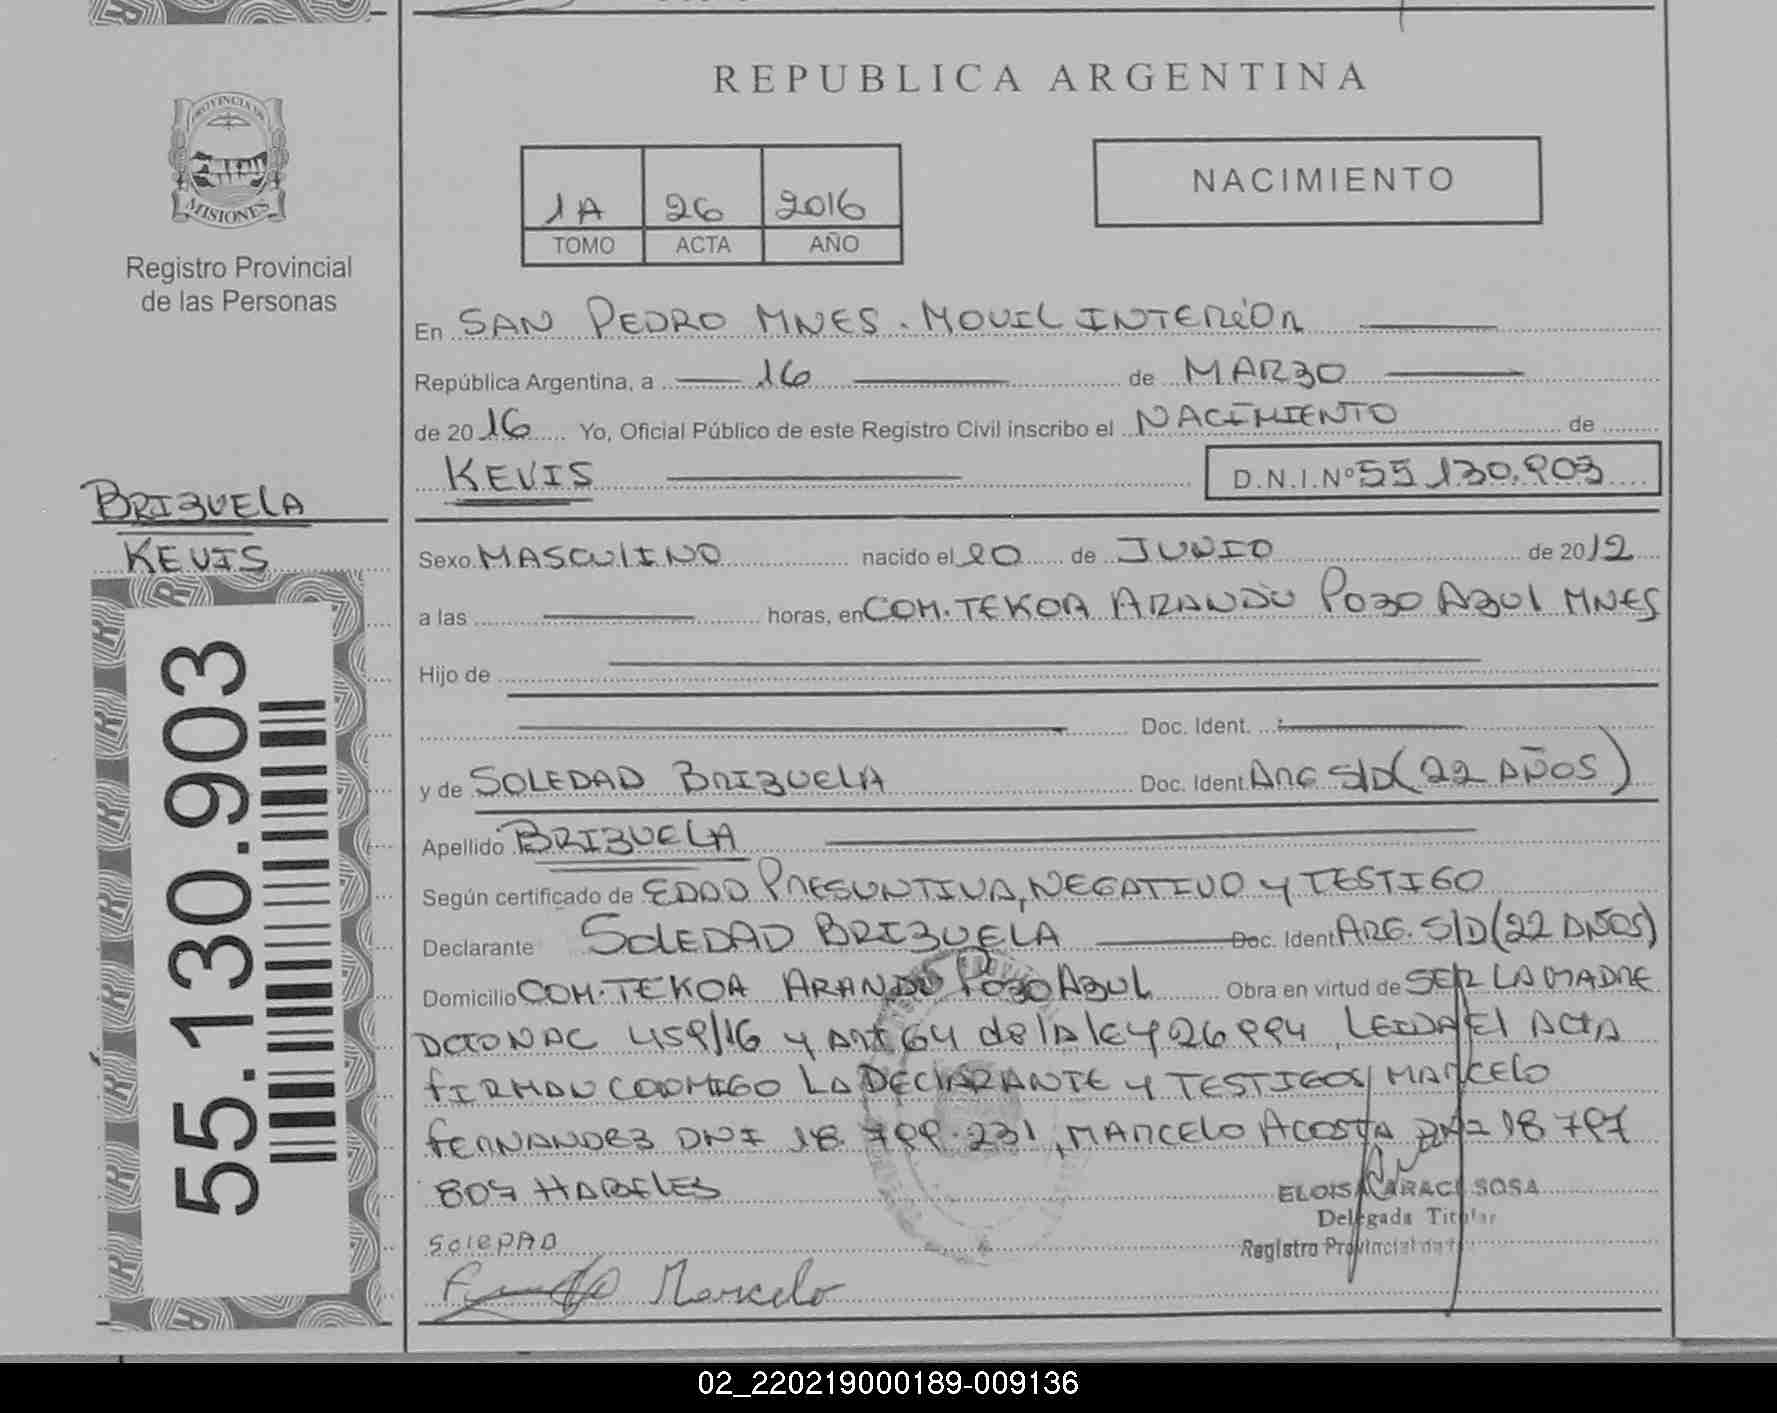 REPUBLICA ARGENTINA
PROVINCIA DE
MISIONES
Registro Provincial
de las Personas
1A 26 2016
TOMO ACTA AÑO
NACIMIENTO
En SAN PEDRO MNES. MOVIL INTERIOR
República Argentina, a 16 de MARZO
de 2016 Yo, Oficial Público de este Registro Civil inscribo el NACIMIENTO de
KEVIS D.N.I.Nº 55.130.903
BRIZUELA
KEVIS
55.130.903
Sexo MASCULINO nacido el 20 de JUNIO de 2012
a las horas, en COM. TEKOA ARANDU POZO AZUL MNES
Hijo de
Doc. Ident.
y de SOLEDAD BRIZUELA Doc. Ident ARG S/D (22 AÑOS)
Apellido BRIZUELA
Según certificado de EDAD PRESUNTIVA, NEGATIVO y TESTIGO
Declarante SOLEDAD BRIZUELA Doc. Ident ARG. S/D (22 AÑOS)
Domicilio COM. TEKOA ARANDU POZO AZUL Obra en virtud de SER LA MADRE
DCTO NAC 459/16 y ART 64 de lA ley 26994, LEIDA El ACTA
FIRMAN CONMIGO LA DECLARANTE y TESTIGOS MARCELO
FERNANDEZ DNI 18.799.231, MARCELO ACOSTA DNI 18 797
809 HABILES
SOlEDAD
Marcelo
ELOISA ARACI SOSA
Delegada Titular
Registro Provincial de
02_220219000189-009136